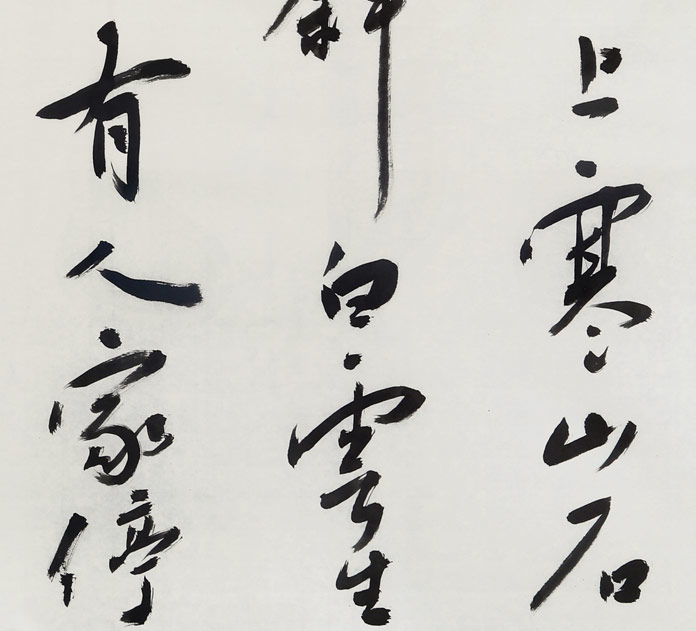 上寒山石
斜白雲生
有人家停